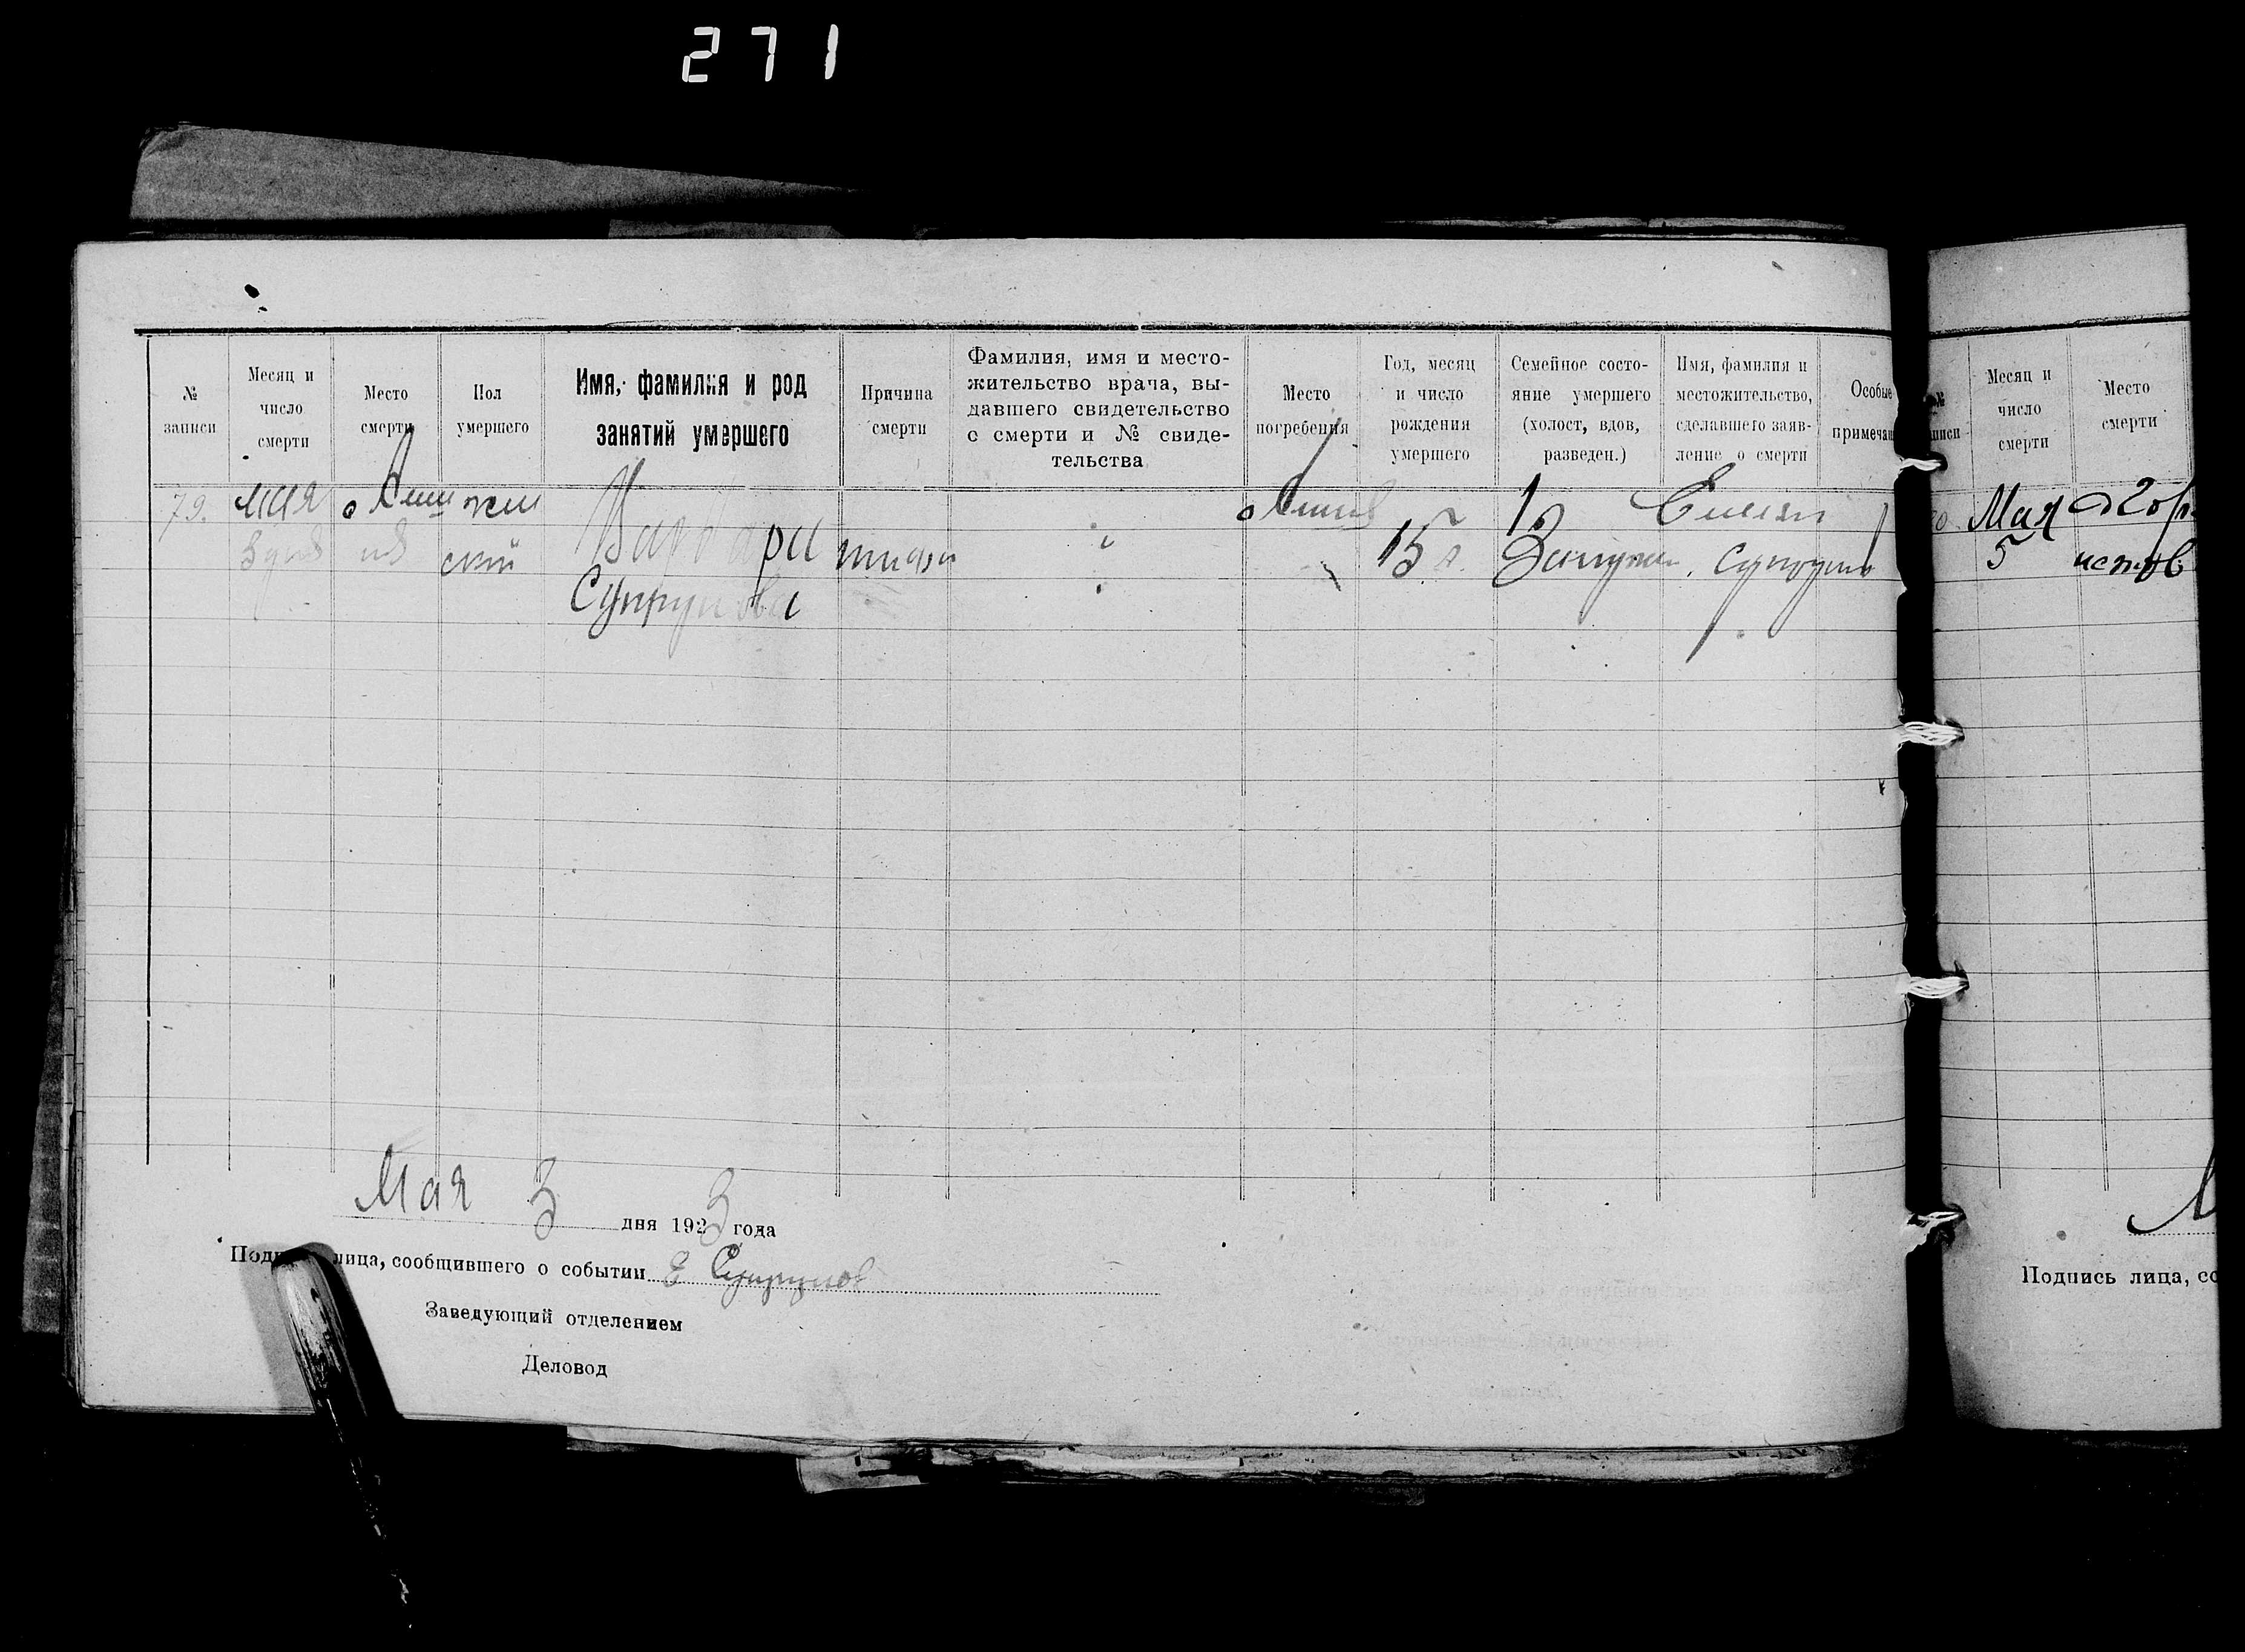 271
№ записи
Месяц и число смерти
Место смерти
Пол умершего
Имя, фамилия и род занятий умершего
Причина смерти
Фамилия, имя и место-
жительство врача, вы-
давшего свидетельство
о смерти и № свиде-
тельства
Место погребения
Год, месяц и число рождения умершего
Семейное состо-
яние умершего
(холост, вдов,
разведен.)
Имя, фамилия и
местожительство,
сделавшего заяв-
ление о смерти
Особые
примечан
79. мая жен
3 ский Варвара тифа 15 л. Замужем
Супрунова
Мая 3 дня 1923 года
Подпись лица, сообщившего о событии Е Супрунов
Заведующий отделением
Деловод
Месяц и число смерти
Место смерти
Мая
5
Подпись лица, со